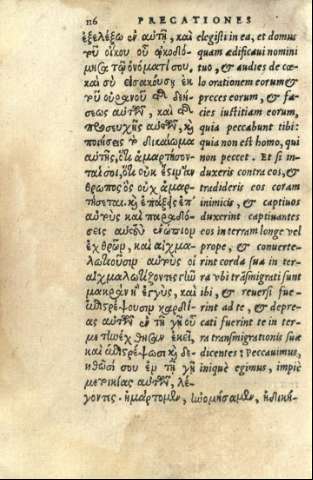 116 PRECATIONES
ἐξελέξω ἐν αὐτῇ, καὶ
τοῦ οἴκου οὗ ᾠκοδό-
μησα τῷ ὀνόματί σου,
καὶ σὺ εἰσακούσῃ ἐκ
τοῦ οὐρανοῦ τῆς δεή-
σεως αὐτῶν, καὶ τῆς
προσευχῆς αὐτῶν, καὶ
ποιήσεις τὸ δικαίωμα
αὐτῆς, ὅτι ἁμαρτήσον-
ταί σοι, ὅτι οὐκ ἔστιν ἄν
θρωπος ὃς οὐχ ἁμαρ-
τήσεται. καὶ ἐπάξεις ἐπ'
αὐτοὺς καὶ παραδώ-
σεις αὐτοὺς ἐνώπιον
ἐχθρῶν, καὶ αἰχμα-
λωτιοῦσιν αὐτοὺς οἱ
αἰχμαλωτίζοντες εἰς γῆν
μακρὰν ἢ ἐγγὺς, καὶ
ἐπιστρέψουσιν καρδίας
αὐτῶν ἐν τῇ γῇ οὗ
μετήχθησαν ἐκεῖ,
καὶ ἐπιστρέψωσι καὶ δε
ηθῶσί σου ἐν τῇ γῇ
μετοικίας αὐτῶν, λέ-
γοντες. ἡμάρτομεν, ἠνομήσαμεν, ἠδική-
elegisti in ea, et domus
quam ædificaui nomini
tuo, & audies de cœ-
lo orationem eorum &
preces eorum, & fa-
cies iustitiam eorum,
quia peccabunt tibi:
quia non est homo, qui
non peccet. Et si in-
duxeris contra eos, &
tradideris eos coram
inimicis, & captiuos
duxerint captiuantes
eos in terram longe vel
prope, & conuerte-
rint corda sua in ter-
ra vbi trāsmigrati sunt
ibi, & reuersi fue-
rint ad te, & depre-
cati fuerint te in ter-
ra transmigrationis suæ
dicentes: Peccauimus,
iniquè egimus, impiè